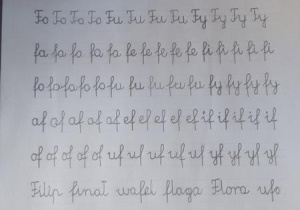 Fo Fo Fo Fo Fu Fu Fu Fu Fy Fy Fy Fy
fa fa fa fa fa fe fe fe fe fe fi fi fi fi fi
fo fo fo fo fo fu fu fu fu fu fy fy fy fy
af af af af af ef ef ef ef ef if if if if if
of of of of of uf uf uf uf uf yf yf yf yf
Filip finał wafel flaga Flora ufo